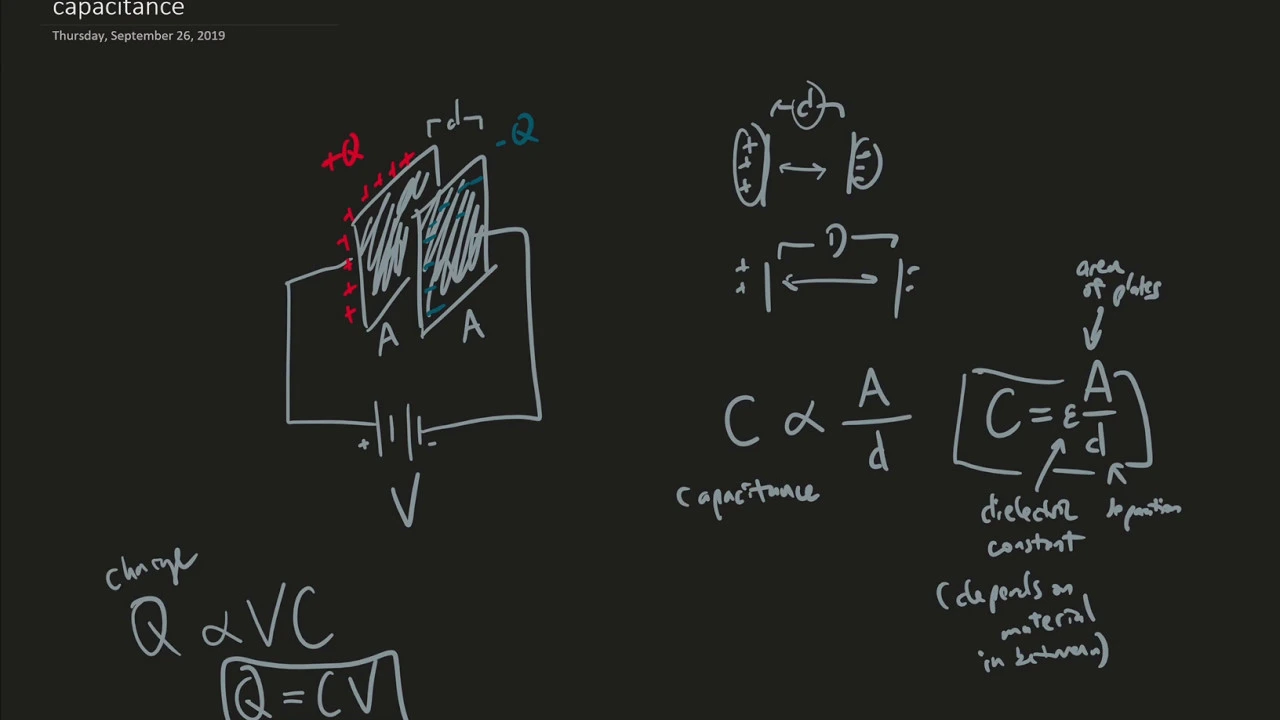 capacitance
Thursday, September 26, 2019
d
+Q
-Q
A
A
+ -
V
charge
Q ∝ VC
Q = CV
d
+
+
+
-
-
-
D
+
+
-
-
C ∝ A/d
capacitance
area
of plates
C = ε A/d
dielectric
constant
(depends on
material
in between)
separation